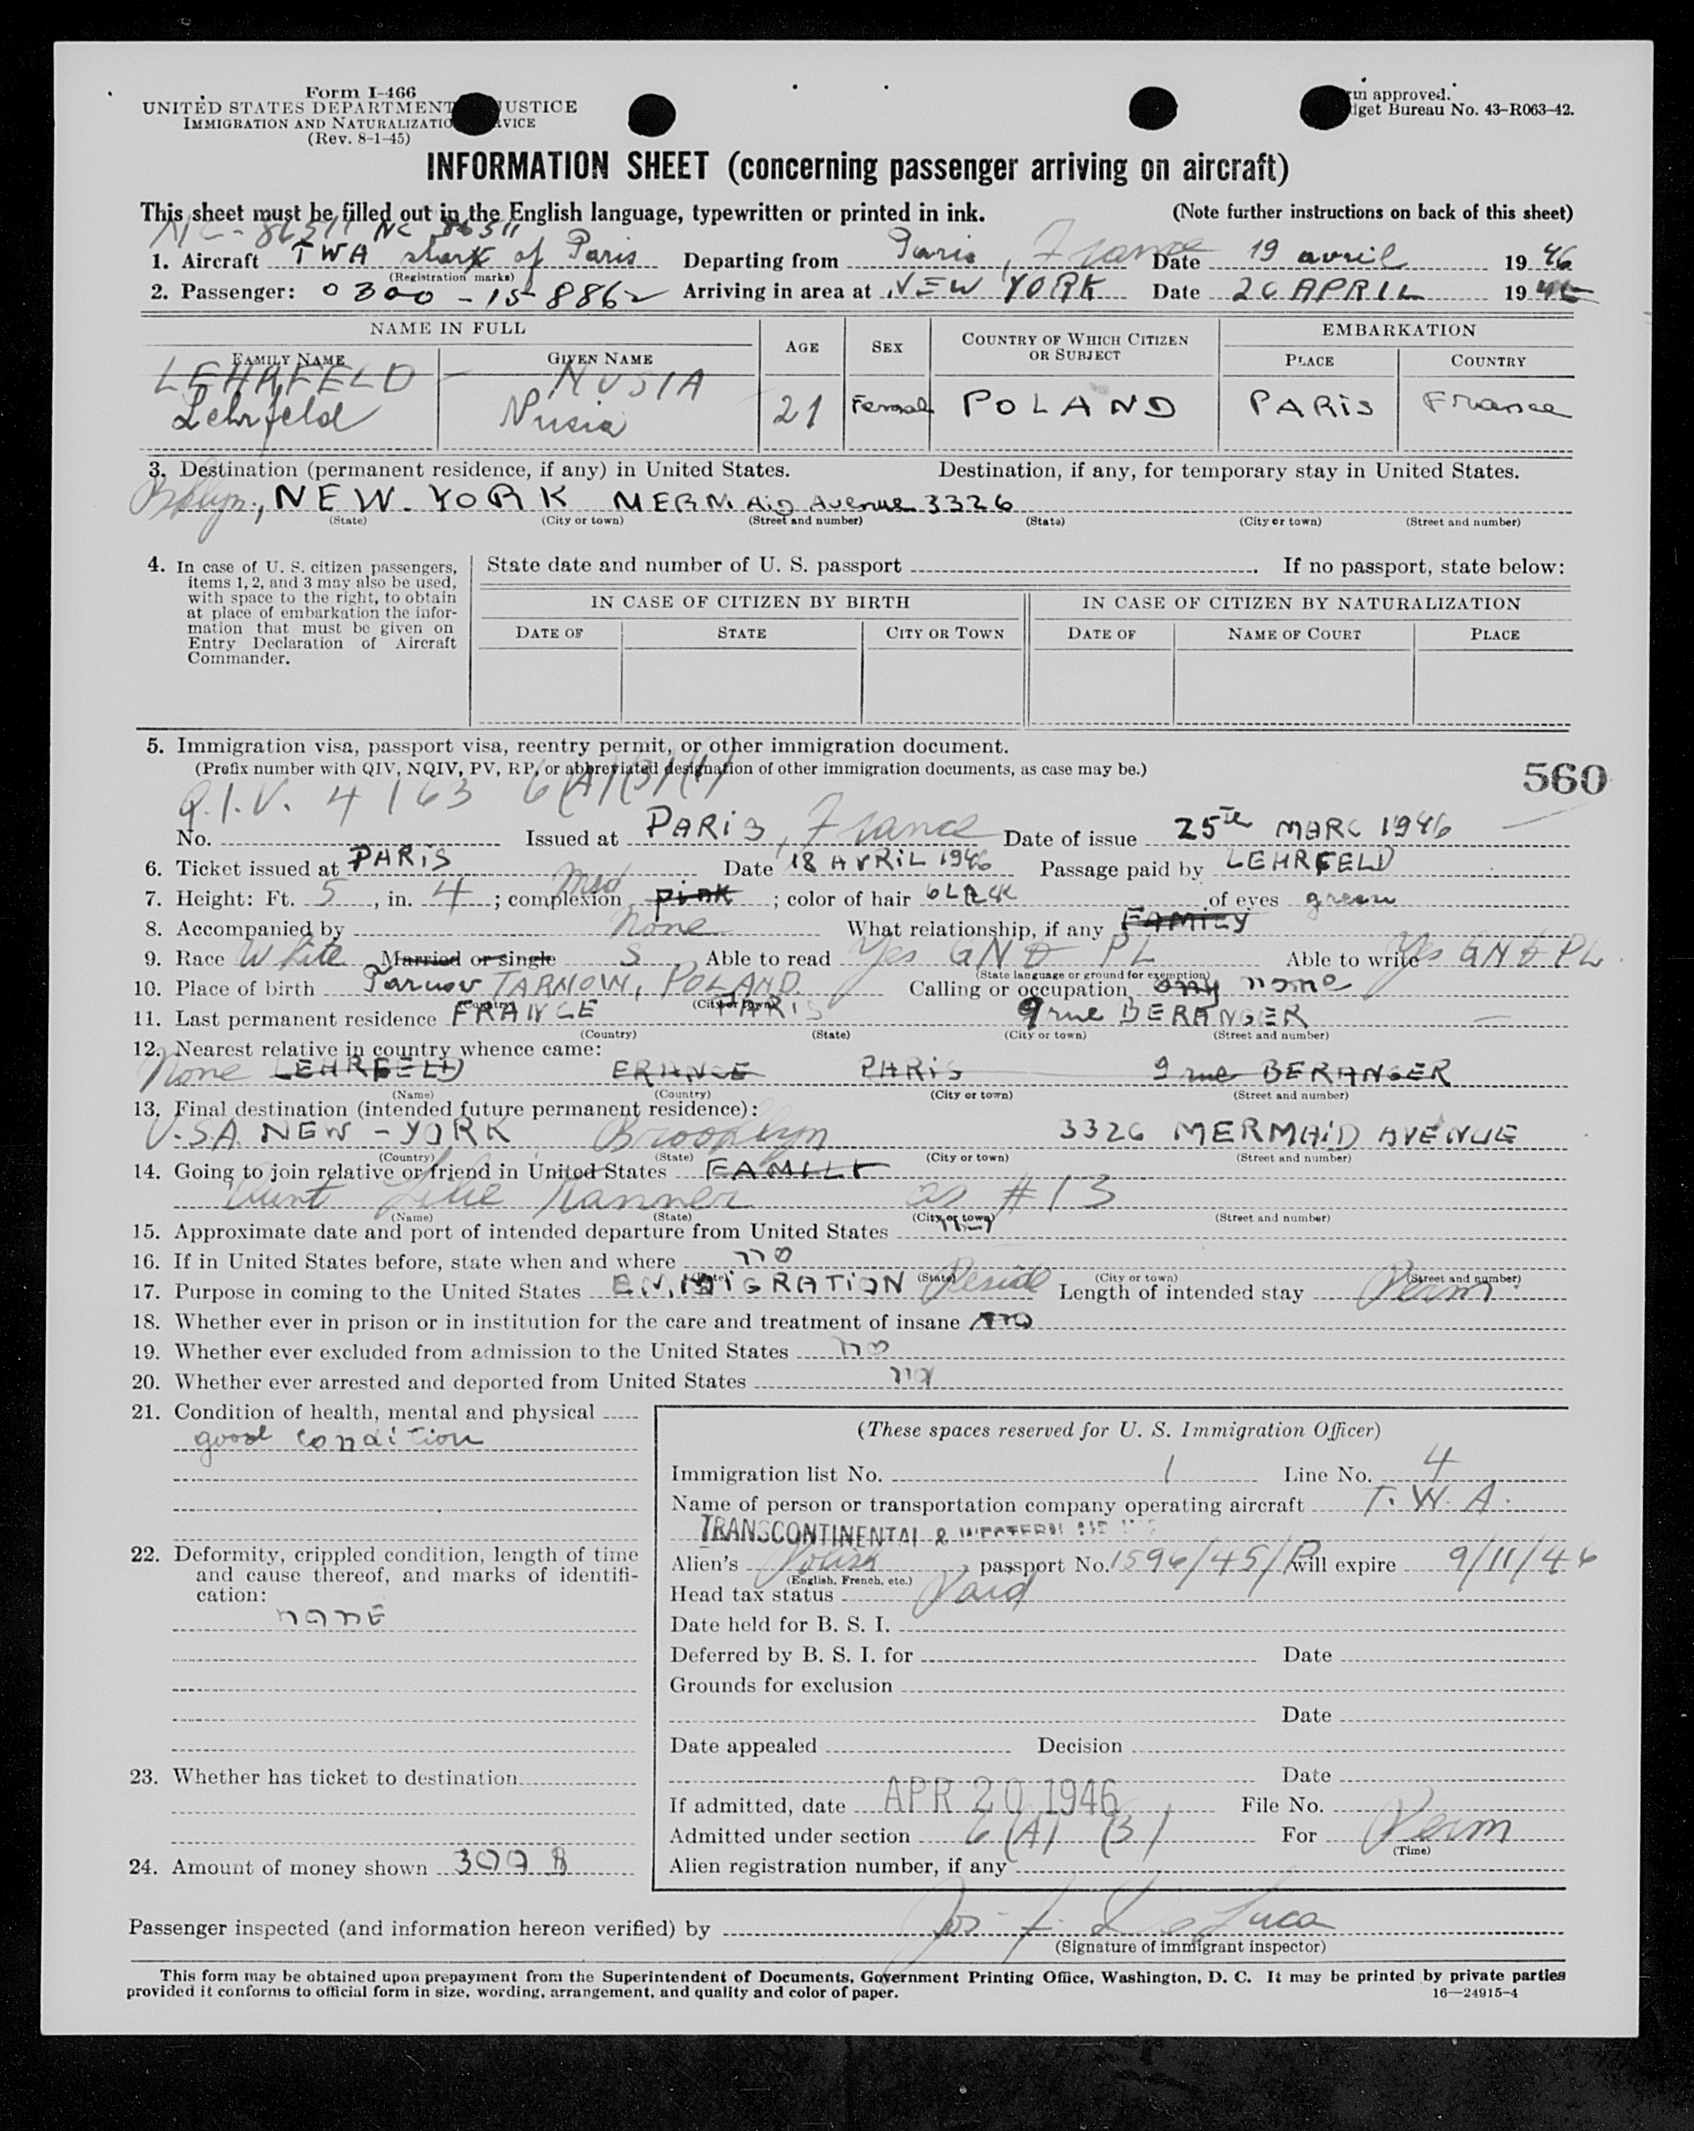 Form I-466
UNITED STATES DEPARTMENT JUSTICE
IMMIGRATION AND NATURALIZATIO VICE
(Rev. 8-1-45)
m approved.
dget Bureau No. 43-R063-42.
INFORMATION SHEET (concerning passenger arriving on aircraft)
This sheet must be filled out in the English language, typewritten or printed in ink. (Note further instructions on back of this sheet)
NC-86511 NC 86511
1. Aircraft TWA of Paris Departing from Paris, France Date 19 avril 1946
(Registration marks)
2. Passenger: 0300-15-8862 Arriving in area at NEW YORK Date 20 APRIL 1946
NAME IN FULL AGE SEX COUNTRY OF WHICH CITIZEN OR SUBJECT EMBARKATION
FAMILY NAME GIVEN NAME PLACE COUNTRY
LEHRFELD NUSIA
Lehrfeld Nusia 21 Femal POLAND PARIS France
3. Destination (permanent residence, if any) in United States. Destination, if any, for temporary stay in United States.
Bklyn., NEW-YORK MERMAiD Avenue 3326
(State) (City or town) (Street and number) (State) (City or town) (Street and number)
4. In case of U. S. citizen passengers, items 1, 2, and 3 may also be used, with space to the right, to obtain at place of embarkation the information that must be given on Entry Declaration of Aircraft Commander.
State date and number of U. S. passport . If no passport, state below:
IN CASE OF CITIZEN BY BIRTH IN CASE OF CITIZEN BY NATURALIZATION
DATE OF STATE CITY OR TOWN DATE OF NAME OF COURT PLACE
5. Immigration visa, passport visa, reentry permit, or other immigration document.
(Prefix number with QIV, NQIV, PV, RP, or abbreviated designation of other immigration documents, as case may be.)
560
Q.I.V. 4163 6(A)(3)(1)
No. Issued at PARIS, France Date of issue 25th MARC 1946
6. Ticket issued at PARIS Date 18 AVRIL 1946 Passage paid by LEHRFELD
7. Height: Ft. 5, in. 4; complexion pink Med; color of hair bLACK of eyes green
8. Accompanied by None What relationship, if any FAMILY
9. Race White Married or single S Able to read Yes GN & PL Able to write Yes GN & PL
(State language or ground for exemption)
10. Place of birth Tarnow TARNOW, POLAND. Calling or occupation none
(Country) (City or town)
11. Last permanent residence FRANCE PARIS 9 rue BERANGER
(Country) (State) (City or town) (Street and number)
12. Nearest relative in country whence came:
None LEHRFELD FRANCE PARIS 9 rue BERANGER
(Name) (Country) (City or town) (Street and number)
13. Final destination (intended future permanent residence):
U.S.A. NEW-YORK Brooklyn 3326 MERMAID AVENUE
(Country) (State) (City or town) (Street and number)
14. Going to join relative or friend in United States FAMILY
Aunt Kanner as #13
(Name) (State) (City or town) (Street and number)
15. Approximate date and port of intended departure from United States
16. If in United States before, state when and where no
(Date) (State) (City or town) (Street and number)
17. Purpose in coming to the United States EMMIGRATION Reside Length of intended stay Perm
18. Whether ever in prison or in institution for the care and treatment of insane no
19. Whether ever excluded from admission to the United States no
20. Whether ever arrested and deported from United States no
21. Condition of health, mental and physical
good condition
22. Deformity, crippled condition, length of time and cause thereof, and marks of identification:
none
23. Whether has ticket to destination
24. Amount of money shown 300 $
(These spaces reserved for U. S. Immigration Officer)
Immigration list No. 1 Line No. 4
Name of person or transportation company operating aircraft T.W.A.
TRANSCONTINENTAL & WESTERN AIR INC
Alien's Polish passport No. 1596/45/P will expire 9/11/46
(English, French, etc.)
Head tax status Paid
Date held for B. S. I.
Deferred by B. S. I. for Date
Grounds for exclusion
Date
Date appealed Decision
Date
If admitted, date APR 20 1946 File No.
Admitted under section 6(A)(3) For Perm
(Time)
Alien registration number, if any
Passenger inspected (and information hereon verified) by Jos. F. De Luca
(Signature of immigrant inspector)
This form may be obtained upon prepayment from the Superintendent of Documents, Government Printing Office, Washington, D. C. It may be printed by private parties
provided it conforms to official form in size, wording, arrangement, and quality and color of paper. 16—24915-4